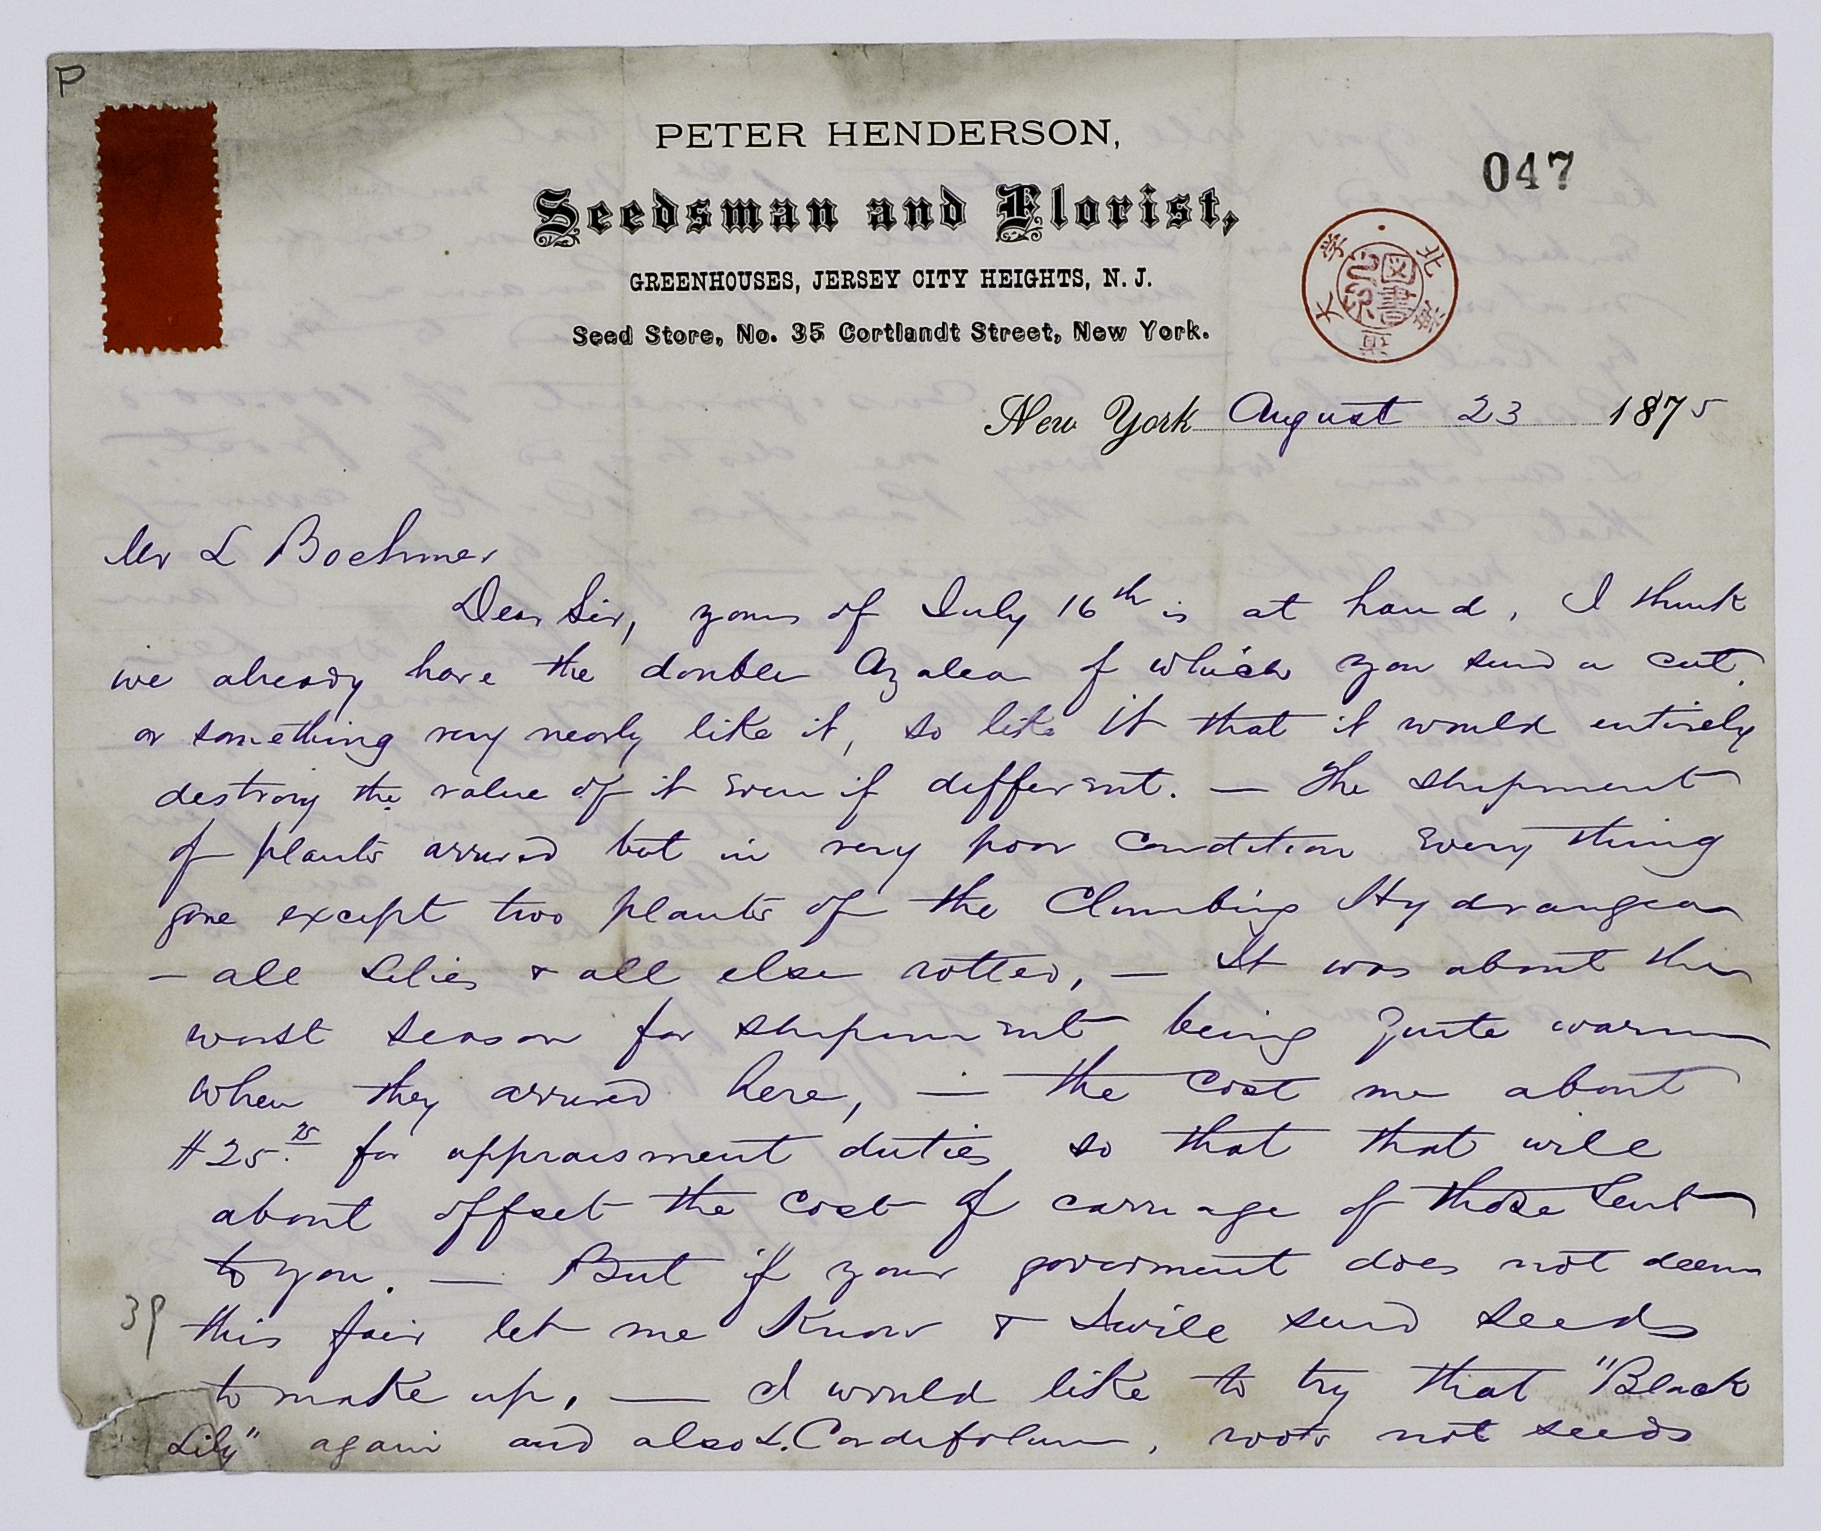 P
PETER HENDERSON,
Seedsman and Florist,
047
GREENHOUSES, JERSEY CITY HEIGHTS, N. J.
Seed Store, No. 35 Cortlandt Street, New York.
北海
大学
圖書
New York August 23 1875
Mr L Boehmer
Dear Sir, yours of July 16th is at hand. I think
we already have the double Azalea of which you send a cut,
or something very nearly like it, so like it that it would entirely
destroy the value of it even if different. — The shipment
of plants arrived but in very poor condition Every thing
gone except two plants of the Climbing Hydrangea
— all Lilies & all else rotted, — It was about the
worst season for shipment being quite warm
when they arrived here, — the cost me about
$25.75 for appraisment duties so that that will
about offset the cost of carriage of those sent
to you. — But if your goverment does not deem
this fair let me know & I will send seeds
39
to make up. — I would like to try that "Black
Lily" again and also L. Cordifolium, roots not seeds